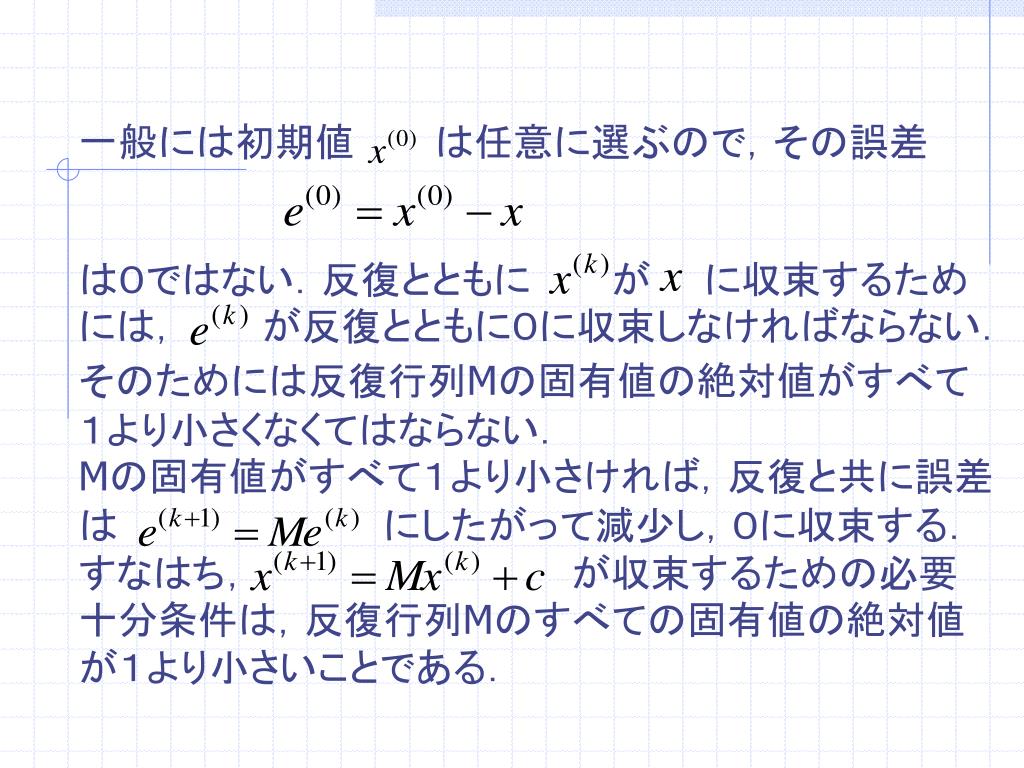 一般には初期値 x^(0) は任意に選ぶので，その誤差
e^(0) = x^(0) − x
は０ではない．反復とともに x^(k) が x に収束するため
には， e^(k) が反復とともに０に収束しなければならない．
そのためには反復行列Mの固有値の絶対値がすべて
１より小さくなくてはならない．
Mの固有値がすべて１より小さければ，反復と共に誤差
は e^(k+1) = Me^(k) にしたがって減少し，０に収束する．
すなはち， x^(k+1) = Mx^(k) + c が収束するための必要
十分条件は，反復行列Mのすべての固有値の絶対値
が１より小さいことである．